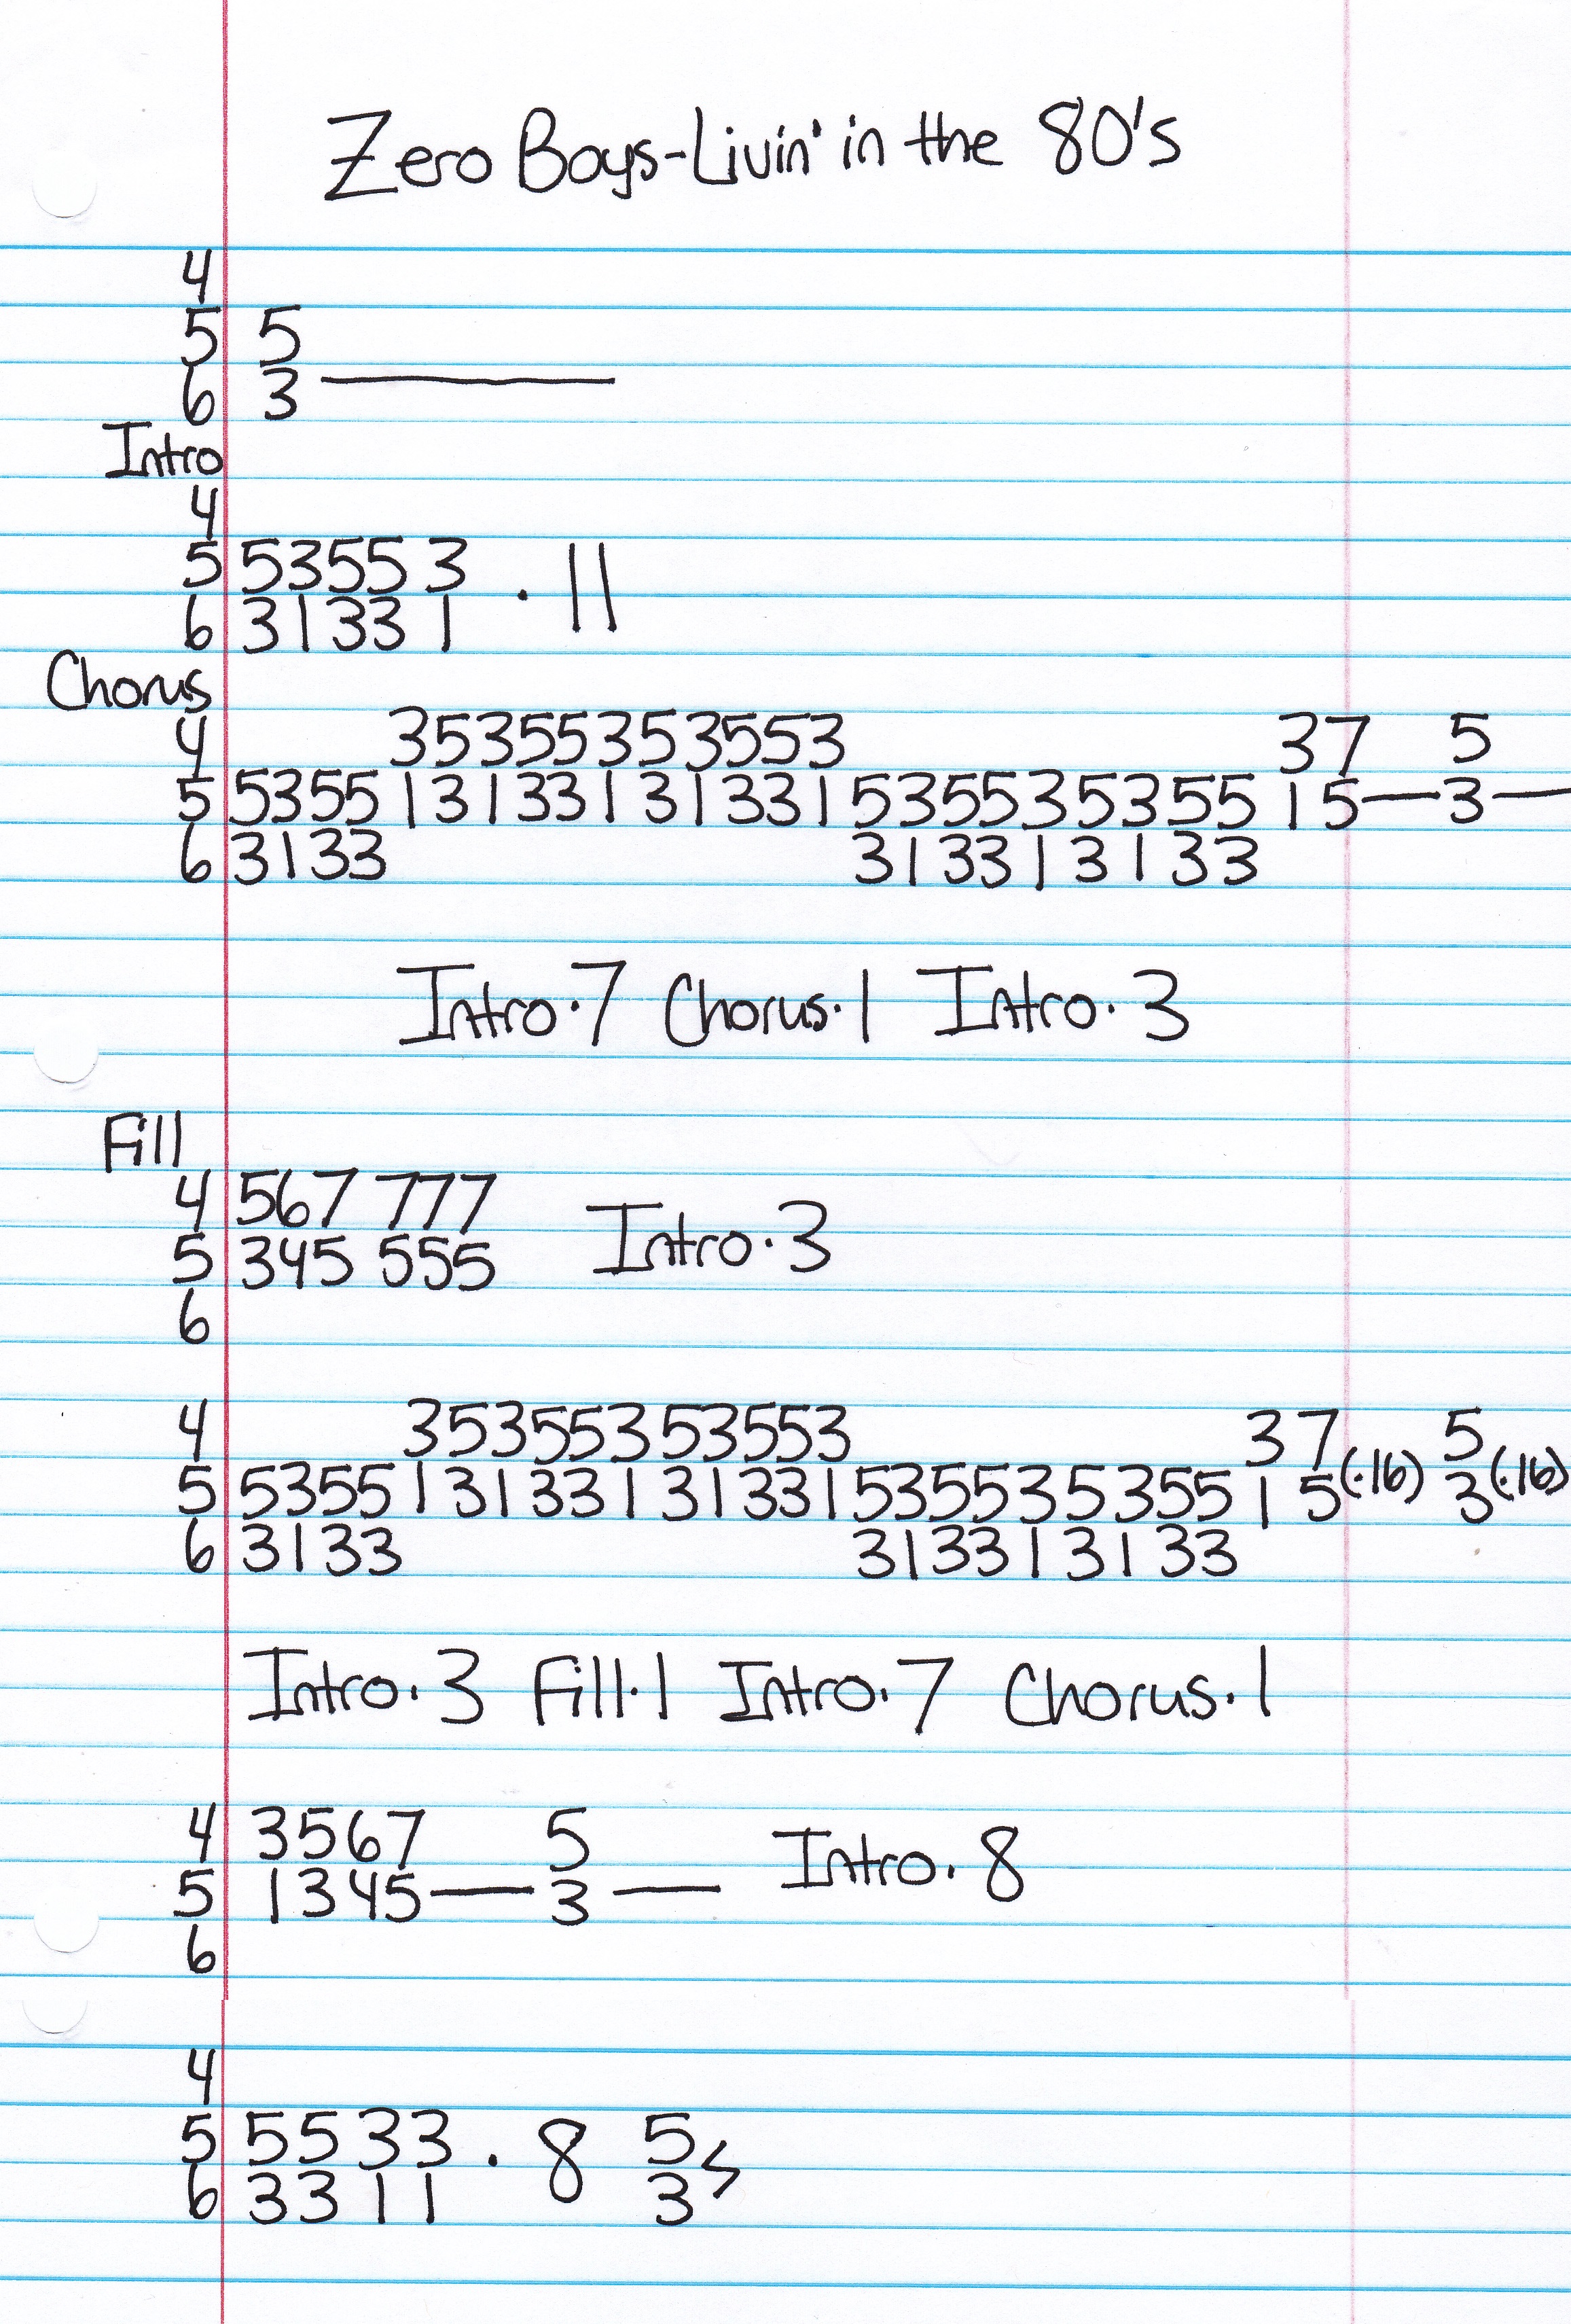 Zero Boys-Livin' in the 80's
4
5 5
6 3 —
Intro
4
5 5355 3 · 11
6 3133 1
Chorus
4 35355353553 37 5
5 5355 13133131331 535535355 5 15— 3—
6 3133 313313133
Intro·7 Chorus·1 Intro·3
Fill
4 567 777 Intro·3
5 345 555
6
4 35355353553 37 5
5 5355 13133131331 5355353555 1 5(·16) 3(·16)
6 3133 313313133
Intro·3 Fill·1 Intro·7 Chorus·1
4 3567 5 Intro·8
5 1345— 3 —
6
4
5 5533 · 8 5
6 3311 3